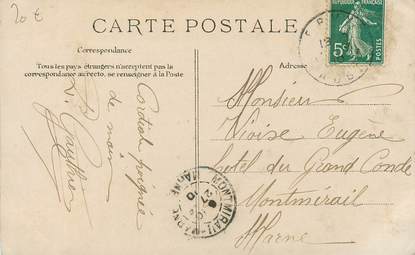 20 €
CARTE POSTALE
RÉPUBLIQUE FRANÇAISE
5c
POSTES
Correspondance
Tous les pays étrangers n'acceptent pas la
correspondance au recto, se renseigner à la Poste
Adresse
Cordiale poignée
de main
Gauthier
Monsieur
Eugène
hotel du Grand Condé
Montmirail
Marne
MONTMIRAIL
MARNE